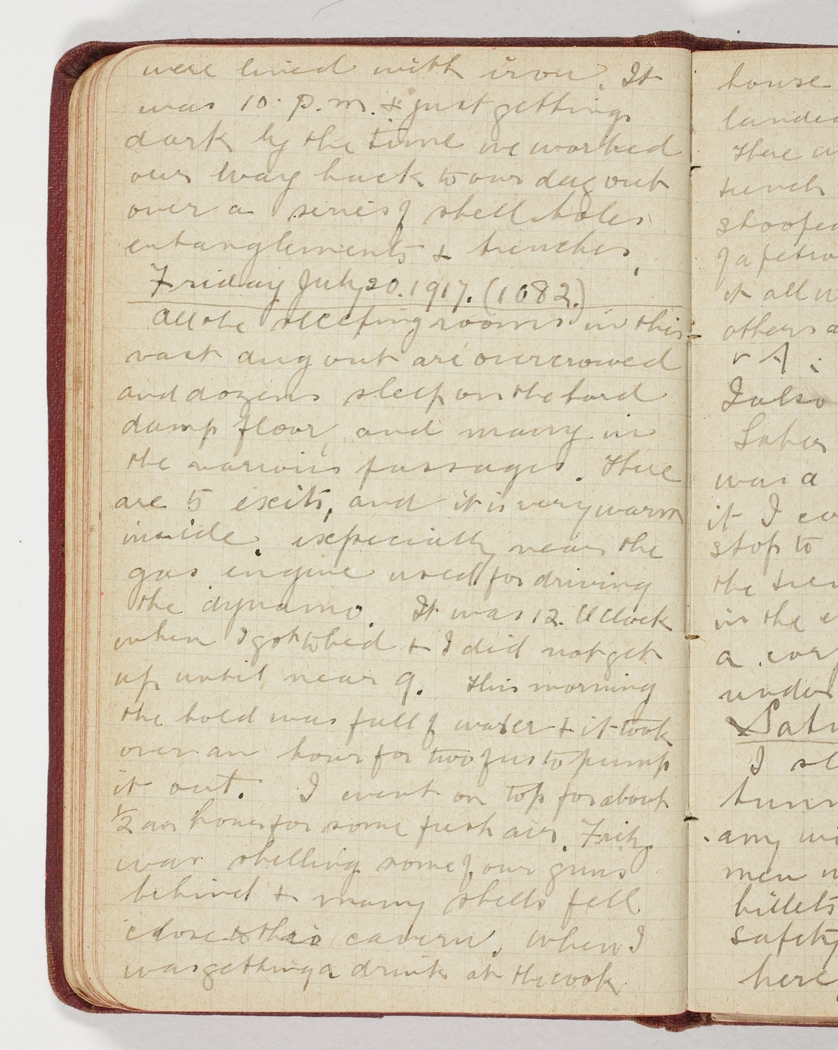 were lined with iron. It
was 10. p.m. & just getting
dark by the time we worked
our way back to our dug out
over a series of shell holes
entanglements & trenches.
Friday July 20. 1917. (1082.)
All the sleeping rooms in this
vast dug out are overcrowed
and dozens sleep on the hard
damp floor, and many in
the various passages. There
are 5 exits, and it is very warm
inside. expecially near the
gas engine used for driving
the dynamo. It was 12. O'Clock
when I got to bed & I did not get
up until near 9. This morning
the hold was full of water & it took
over an hour for two of us to pump
it out. I went on top for about
1/2 an hour for some fresh air. Fritz
was shelling some of our guns
behind & many shells fell
close to this cavern. When I
was getting a drink at the cook
house
landed
There
trench
stooped
of a petrol
it all
others a
I also
was a
it I
stop to
the
in the
a
under
Satu
I sl
tunn
any
men
billets
safety
here